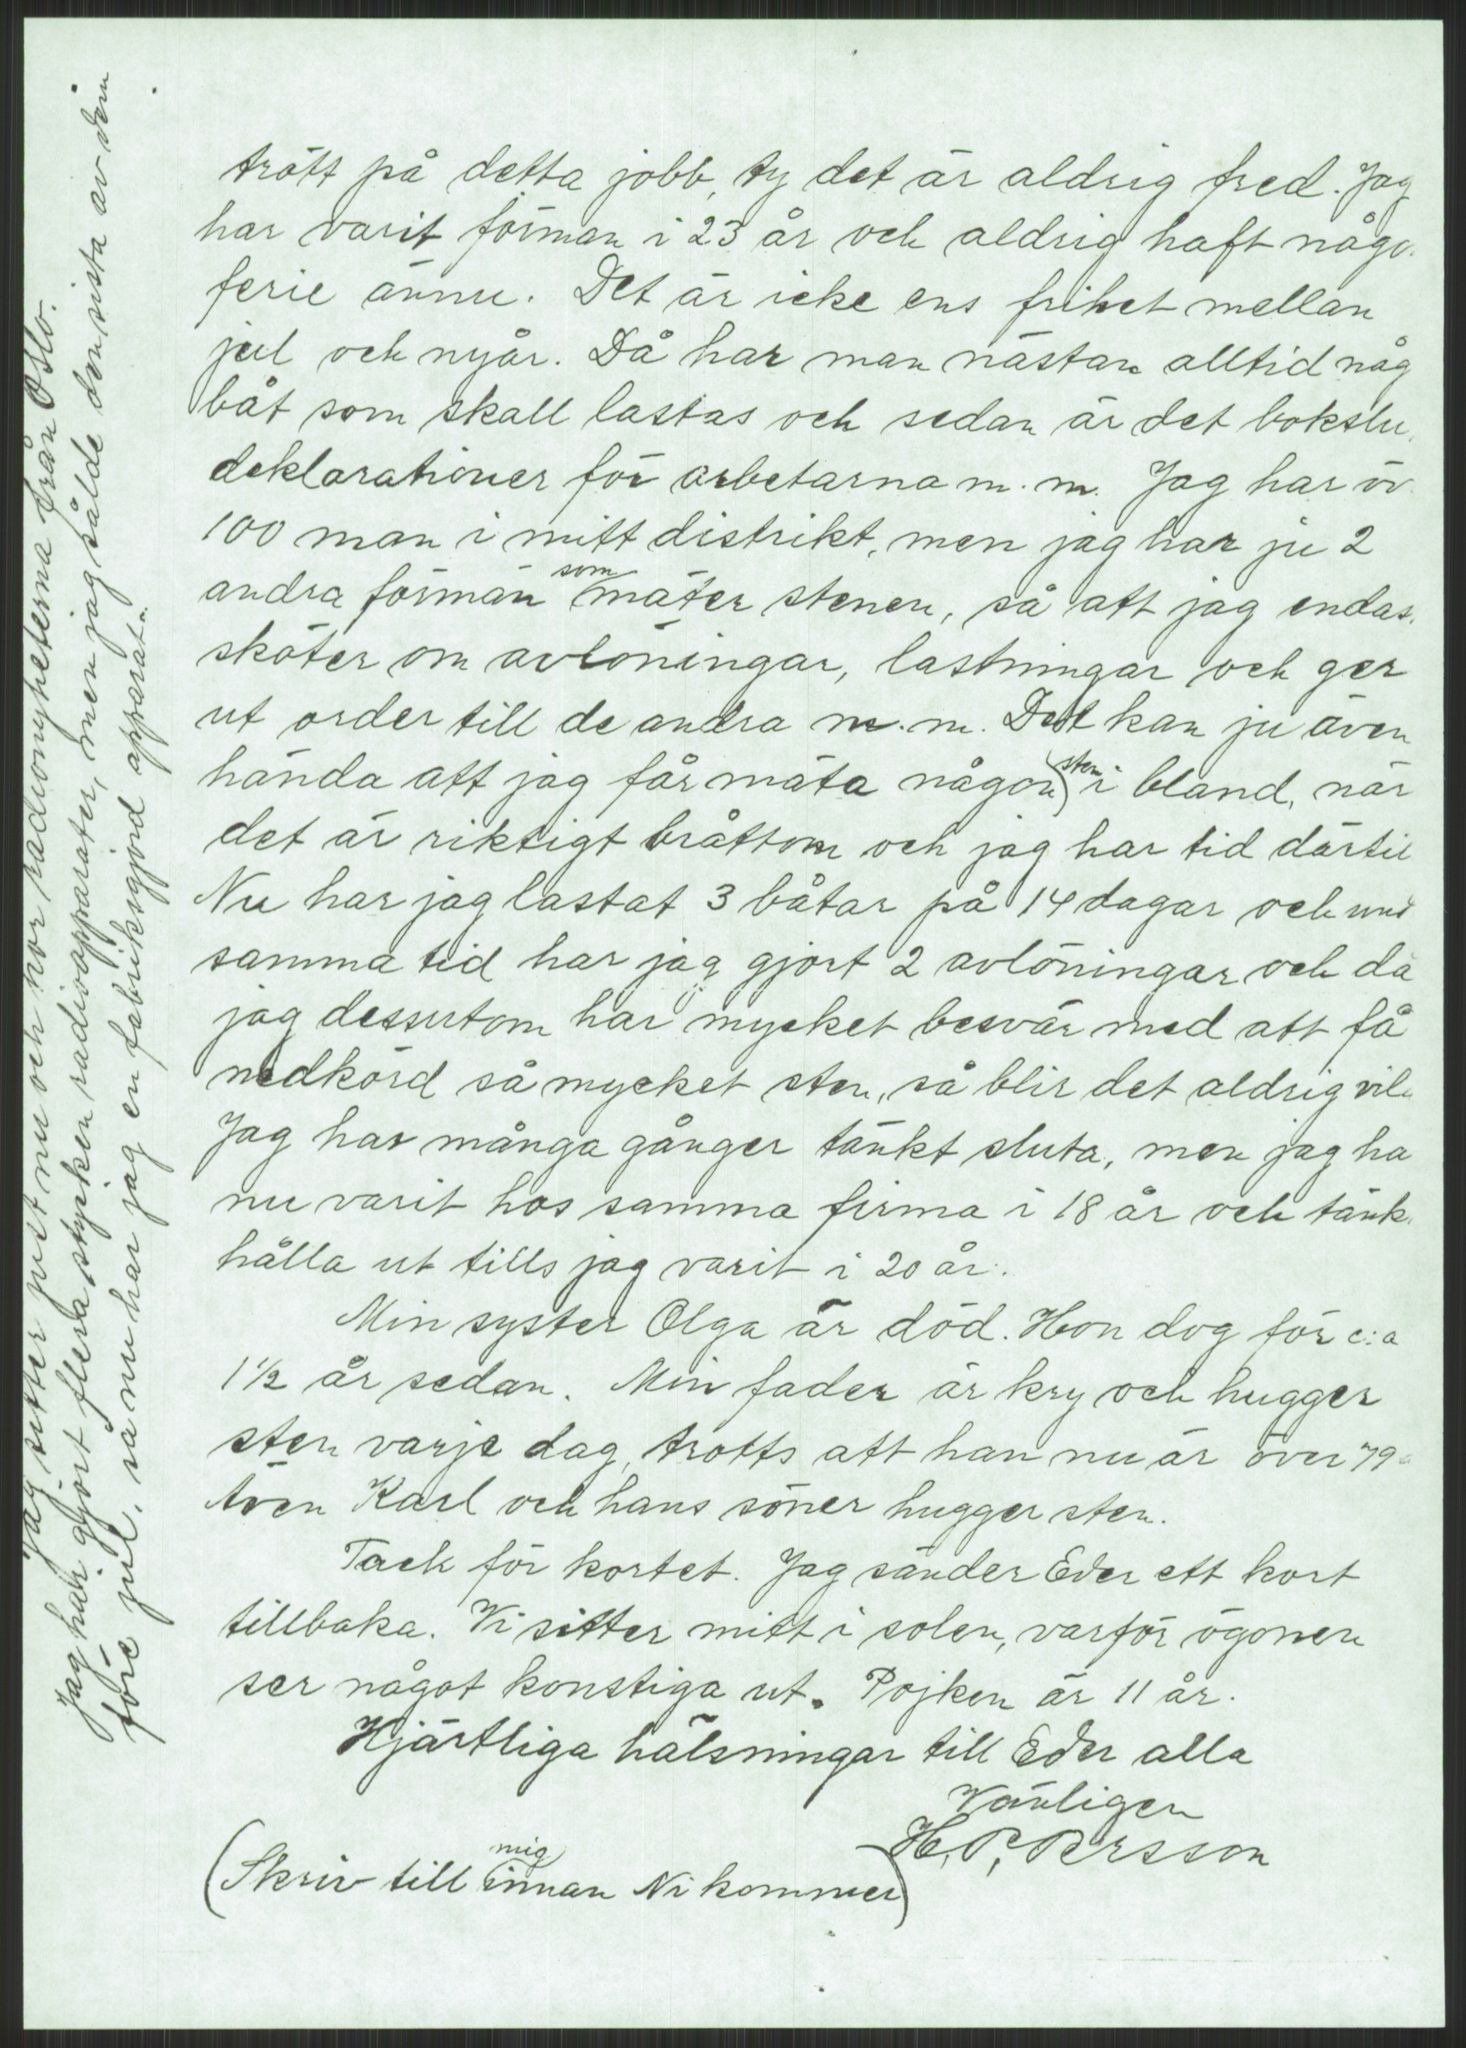 trött på detta jobb, ty det är aldrig fred. Jag
har varit förman i 23 år och aldrig haft någo
ferie ännu. Det är icke ens frihet mellan
jul och nyår. Då har man nästan alltid någ
båt som skall lastas och sedan är det bokslu
deklarationer för arbetarna m.m. Jag har öv
100 man i mitt distrikt, men jag har ju 2
andra förmän som mäter stenen, så att jag endas
sköter om avlöningar, lastningar och ger
ut order till de andra m.m. Det kan ju även
hända att jag får mäta någon sten i bland, när
det är riktigt bråttom och jag har tid därtil
Nu har jag lastat 3 båtar på 14 dagar och und
samma tid har jag gjort 2 avlöningar och då
jag dessutom har mycket besvär med att få
nedkörd så mycket sten, så blir det aldrig vil
Jag har många gånger tänkt sluta, men jag ha
nu varit hos samma firma i 18 år och tänk
hålla ut tills jag varit i 20 år.
Min syster Olga är död. Hon dog för c:a
1 1/2 år sedan. Min fader är kry och hugger
sten varje dag, trotts att han nu är över 79
Även Karl och hans söner hugger sten.
Tack för kortet. Jag sänder Eder ett kort
tillbaka. Vi sitter mitt i solen, varför ögonen
ser något konstiga ut. Pojken är 11 år.
Hjärtliga hälsningar till Eder alla
Vänligen
H. P. Persson
(Skriv till mig innan Ni kommer)
Jag sitter just nu och hör radionyheterna från Oslo.
Jag har gjort flera stycken radioapparater, men jag sålde den sista av dem
före jul, så nu har jag en fabriksgjord apparat.